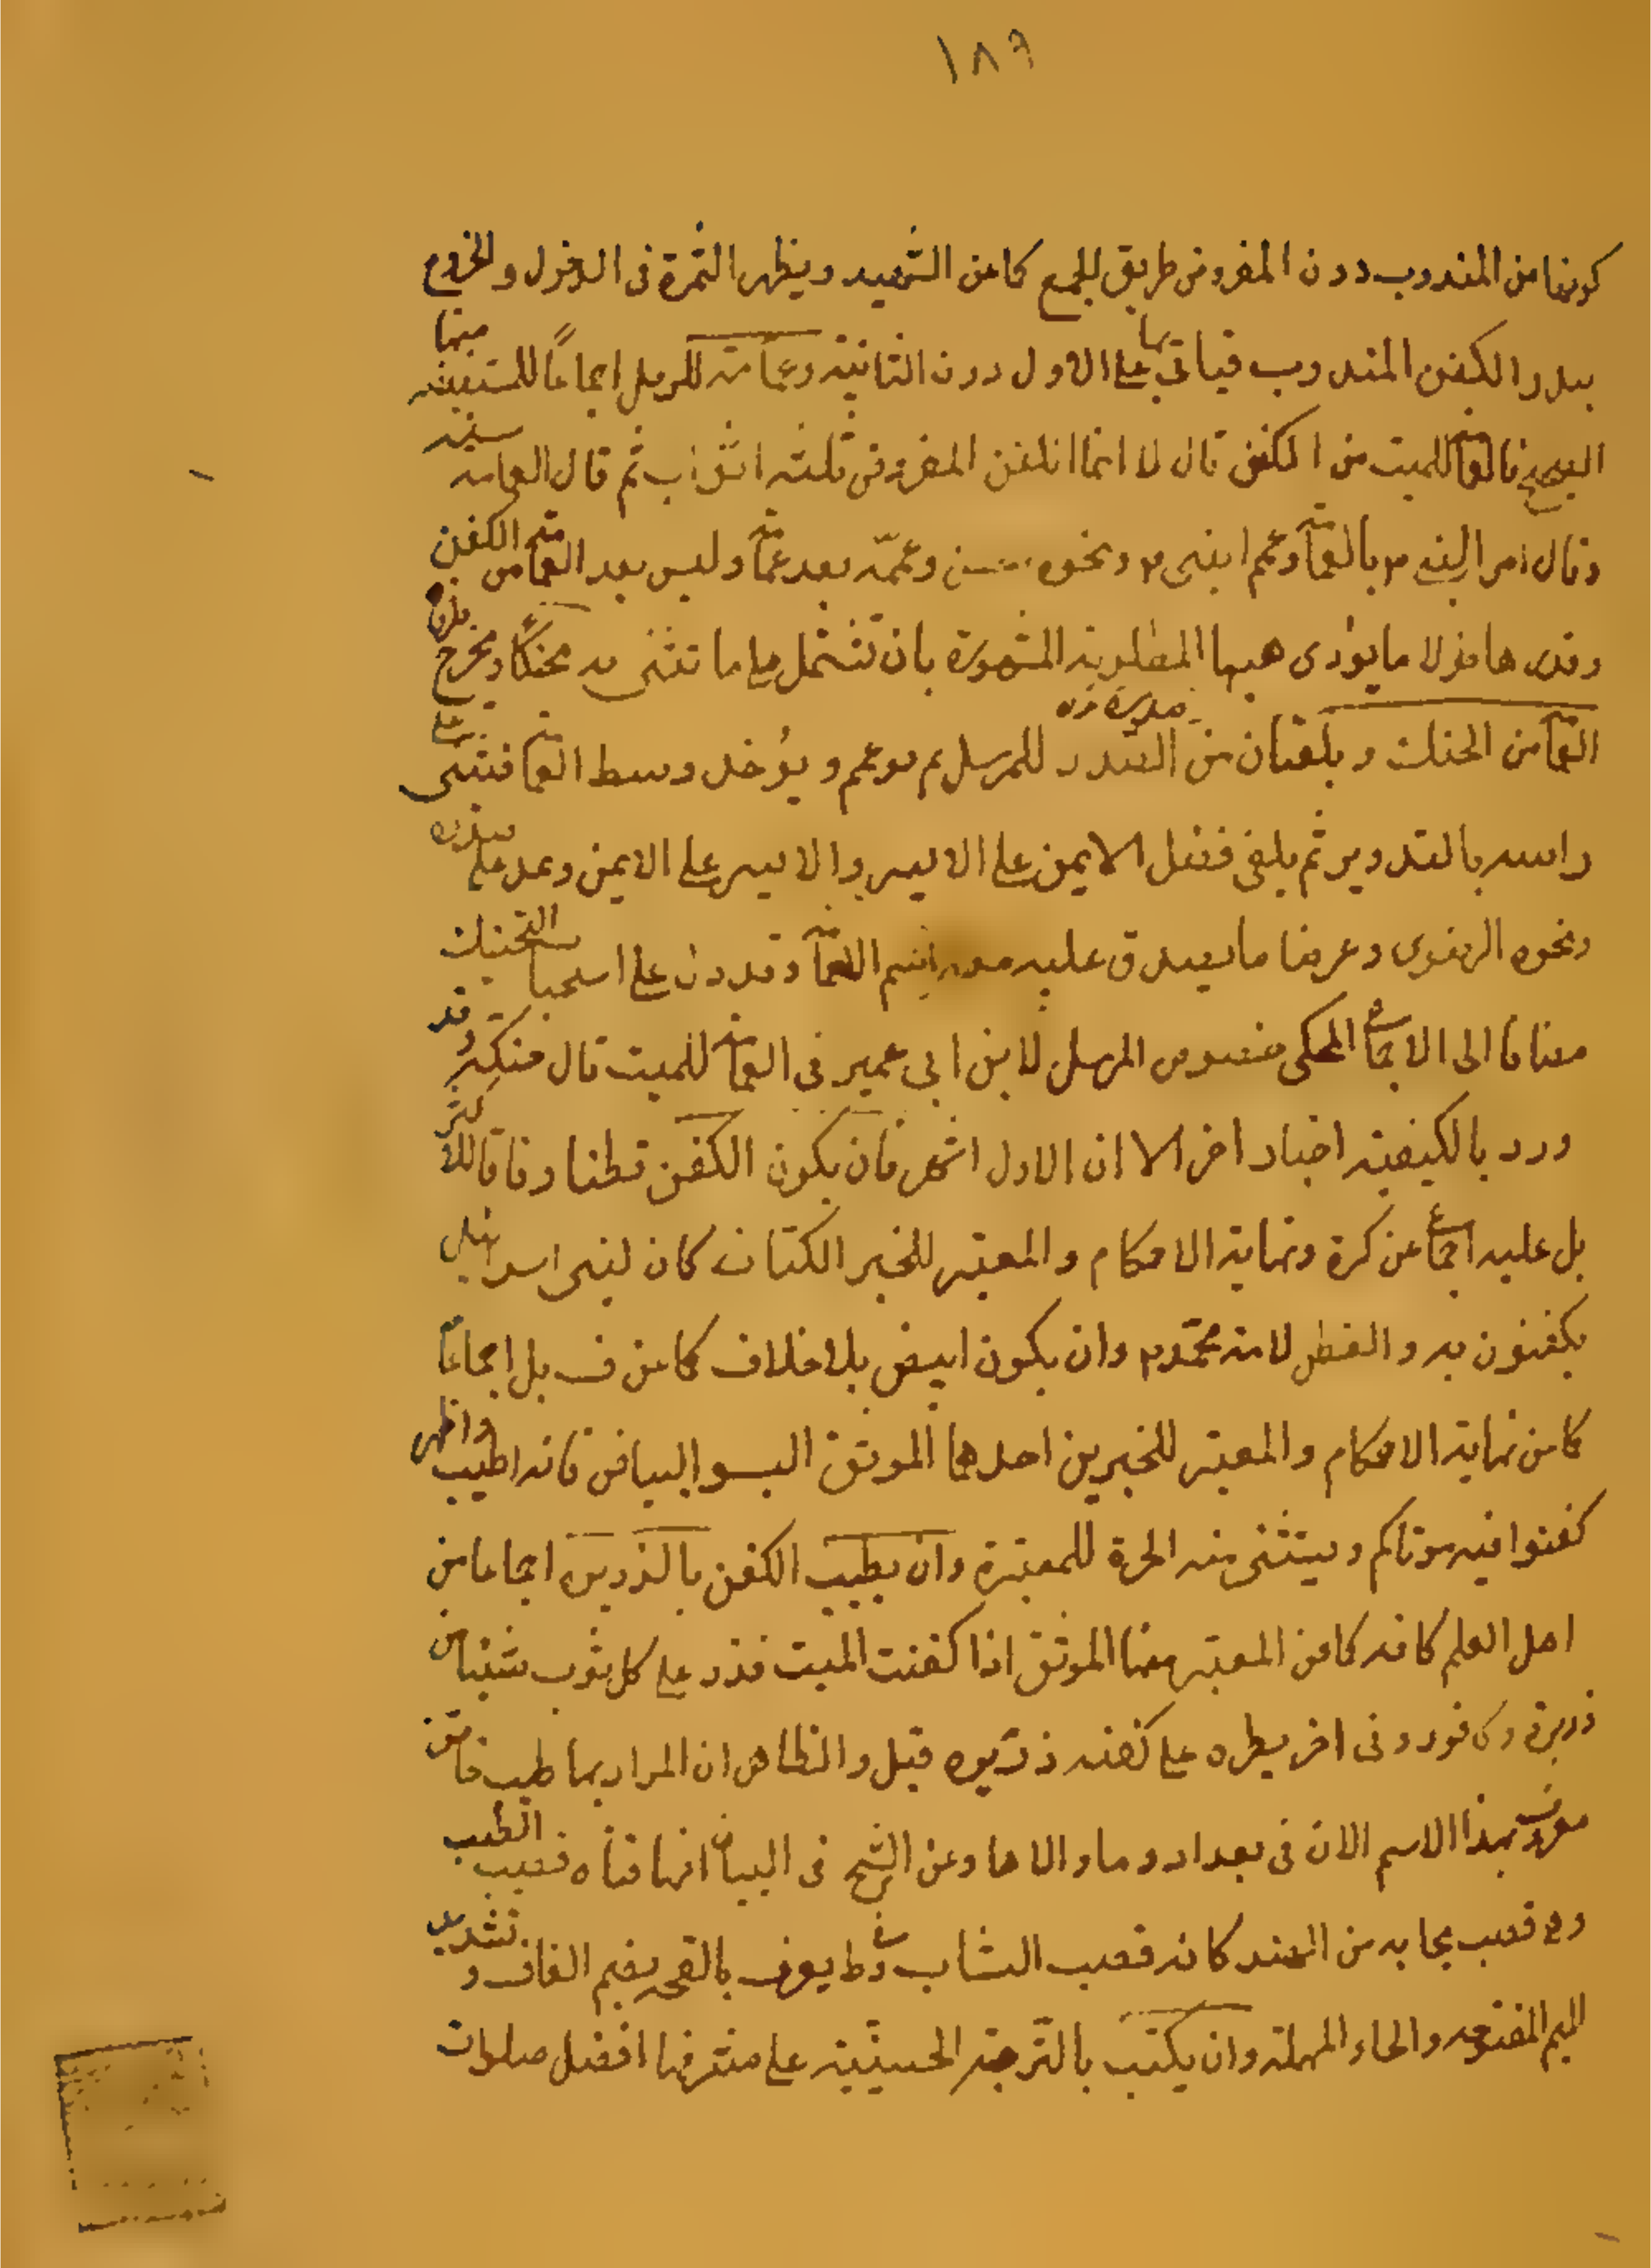 ١٨٩
كونها من المندوب دون المفروض طريق للجمع كما عن الشهيد ويظهر الثمرة فى الدخول والخروج
بنذر الكفن المندوب فياتى بها على الاول دون الثانية وعمامته للرجل اجماعًا للمستفيضه منها
الصحيح فالعمامة للميت من الكفن قال لا انما الكفن المفروض ثلثه اثواب ثم قال العمامه سنه
وقال امر النبى ص بالعمامة وعمم النبى ص ونحوه وعممّه بعد عمامة وليس بعد العمامة من الكفن
وقدرها طولا ما يؤدى هيها المطلوبة المشهورة بان تشتمل على ما تثنى به محنكًا ويخرج طرفا
العمامة من الحنك ويلقيان من الصدر للمرسل يعمم ويؤخذ وسط العمامة فيثنى على
راسه بالتدوير ثم يلقى فضل الايمن على الايسر والايسر على الايمن ويمد على صدره
ونحوه الرضوى وعرضا ما يصدق عليه اسم العمامة وقد دل على استحباب التحنيك
مضافا الى الاجماع المحكى خصوص المرسل لابن ابى عمير فى العمامة للميت قال حنكه وقد
ورد بالكيفية اخبار اخر الا ان الاول اشهر فان يكون الكفن قطنا وفاقا للاكثر
بل عليه اجماع عن كرة ونهاية الاحكام والمعتبر للخبر الكتان كان لبنى اسرائيل
يكفنون به والقطن لامة محمّد ص وان يكون ابيض بلا خلاف كما عن ف بل اجماعا
كما عن نهاية الاحكام والمعتبر للخبرين احدهما الموثق البسوا البياض فانه اطيب واطهر
كفنوا فيه موتاكم ويستثنى منه الحبرة للمعتبرة وان يطيب الكفن بالذريرة اجماعا من
اهل العلم كافه كما عن المعتبر منها الموثق اذا كفنت الميت فذر على كل ثوب شيئا من
ذريرة وكافور وفى اخر يطره على كفنه ذريره قيل والظاهر ان المراد بها طيب خاص
معروف بهذا الاسم الان فى بغداد وما والاها وعن الشيخ فى التبيان انها فتاه قصب الطيب
وهو قصب يجابه من الهند كانه قصب النشاب وفى ط يعرف بالقمحه بضم القاف وتشديد
الميم المفتوحه والحاء المهملة وان يكتب بالتّربة الحسينيّة على مشرفها افضل صلوات